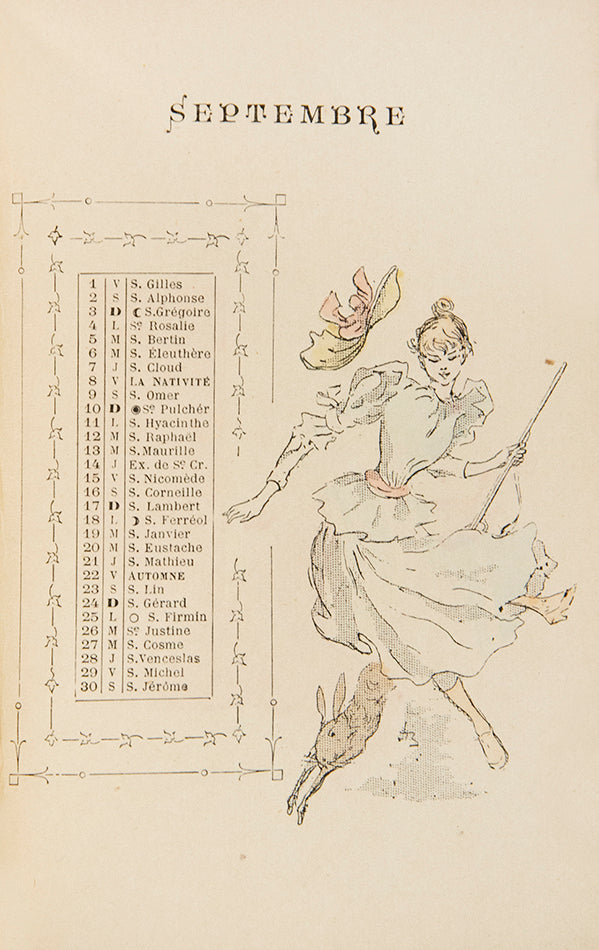 SEPTEMBRE
1 V S. Gilles
2 S S. Alphonse
3 D ☾ S. Grégoire
4 L Sᵉ Rosalie
5 M S. Bertin
6 M S. Éleuthère
7 J S. Cloud
8 V LA NATIVITÉ
9 S S. Omer
10 D Sᵉ Pulchér
11 L S. Hyacinthe
12 M S. Raphael
13 M S. Maurille
14 J Ex. de Sᵉ Cr.
15 V S. Nicomède
16 S S. Corneille
17 D S. Lambert
18 L ☽ S. Ferréol
19 M S. Janvier
20 M S. Eustache
21 J S. Mathieu
22 V AUTOMNE
23 S S. Lin
24 D S. Gérard
25 L S. Firmin
26 M Sᵉ Justine
27 M S. Cosme
28 J S. Venceslas
29 V S. Michel
30 S S. Jérôme